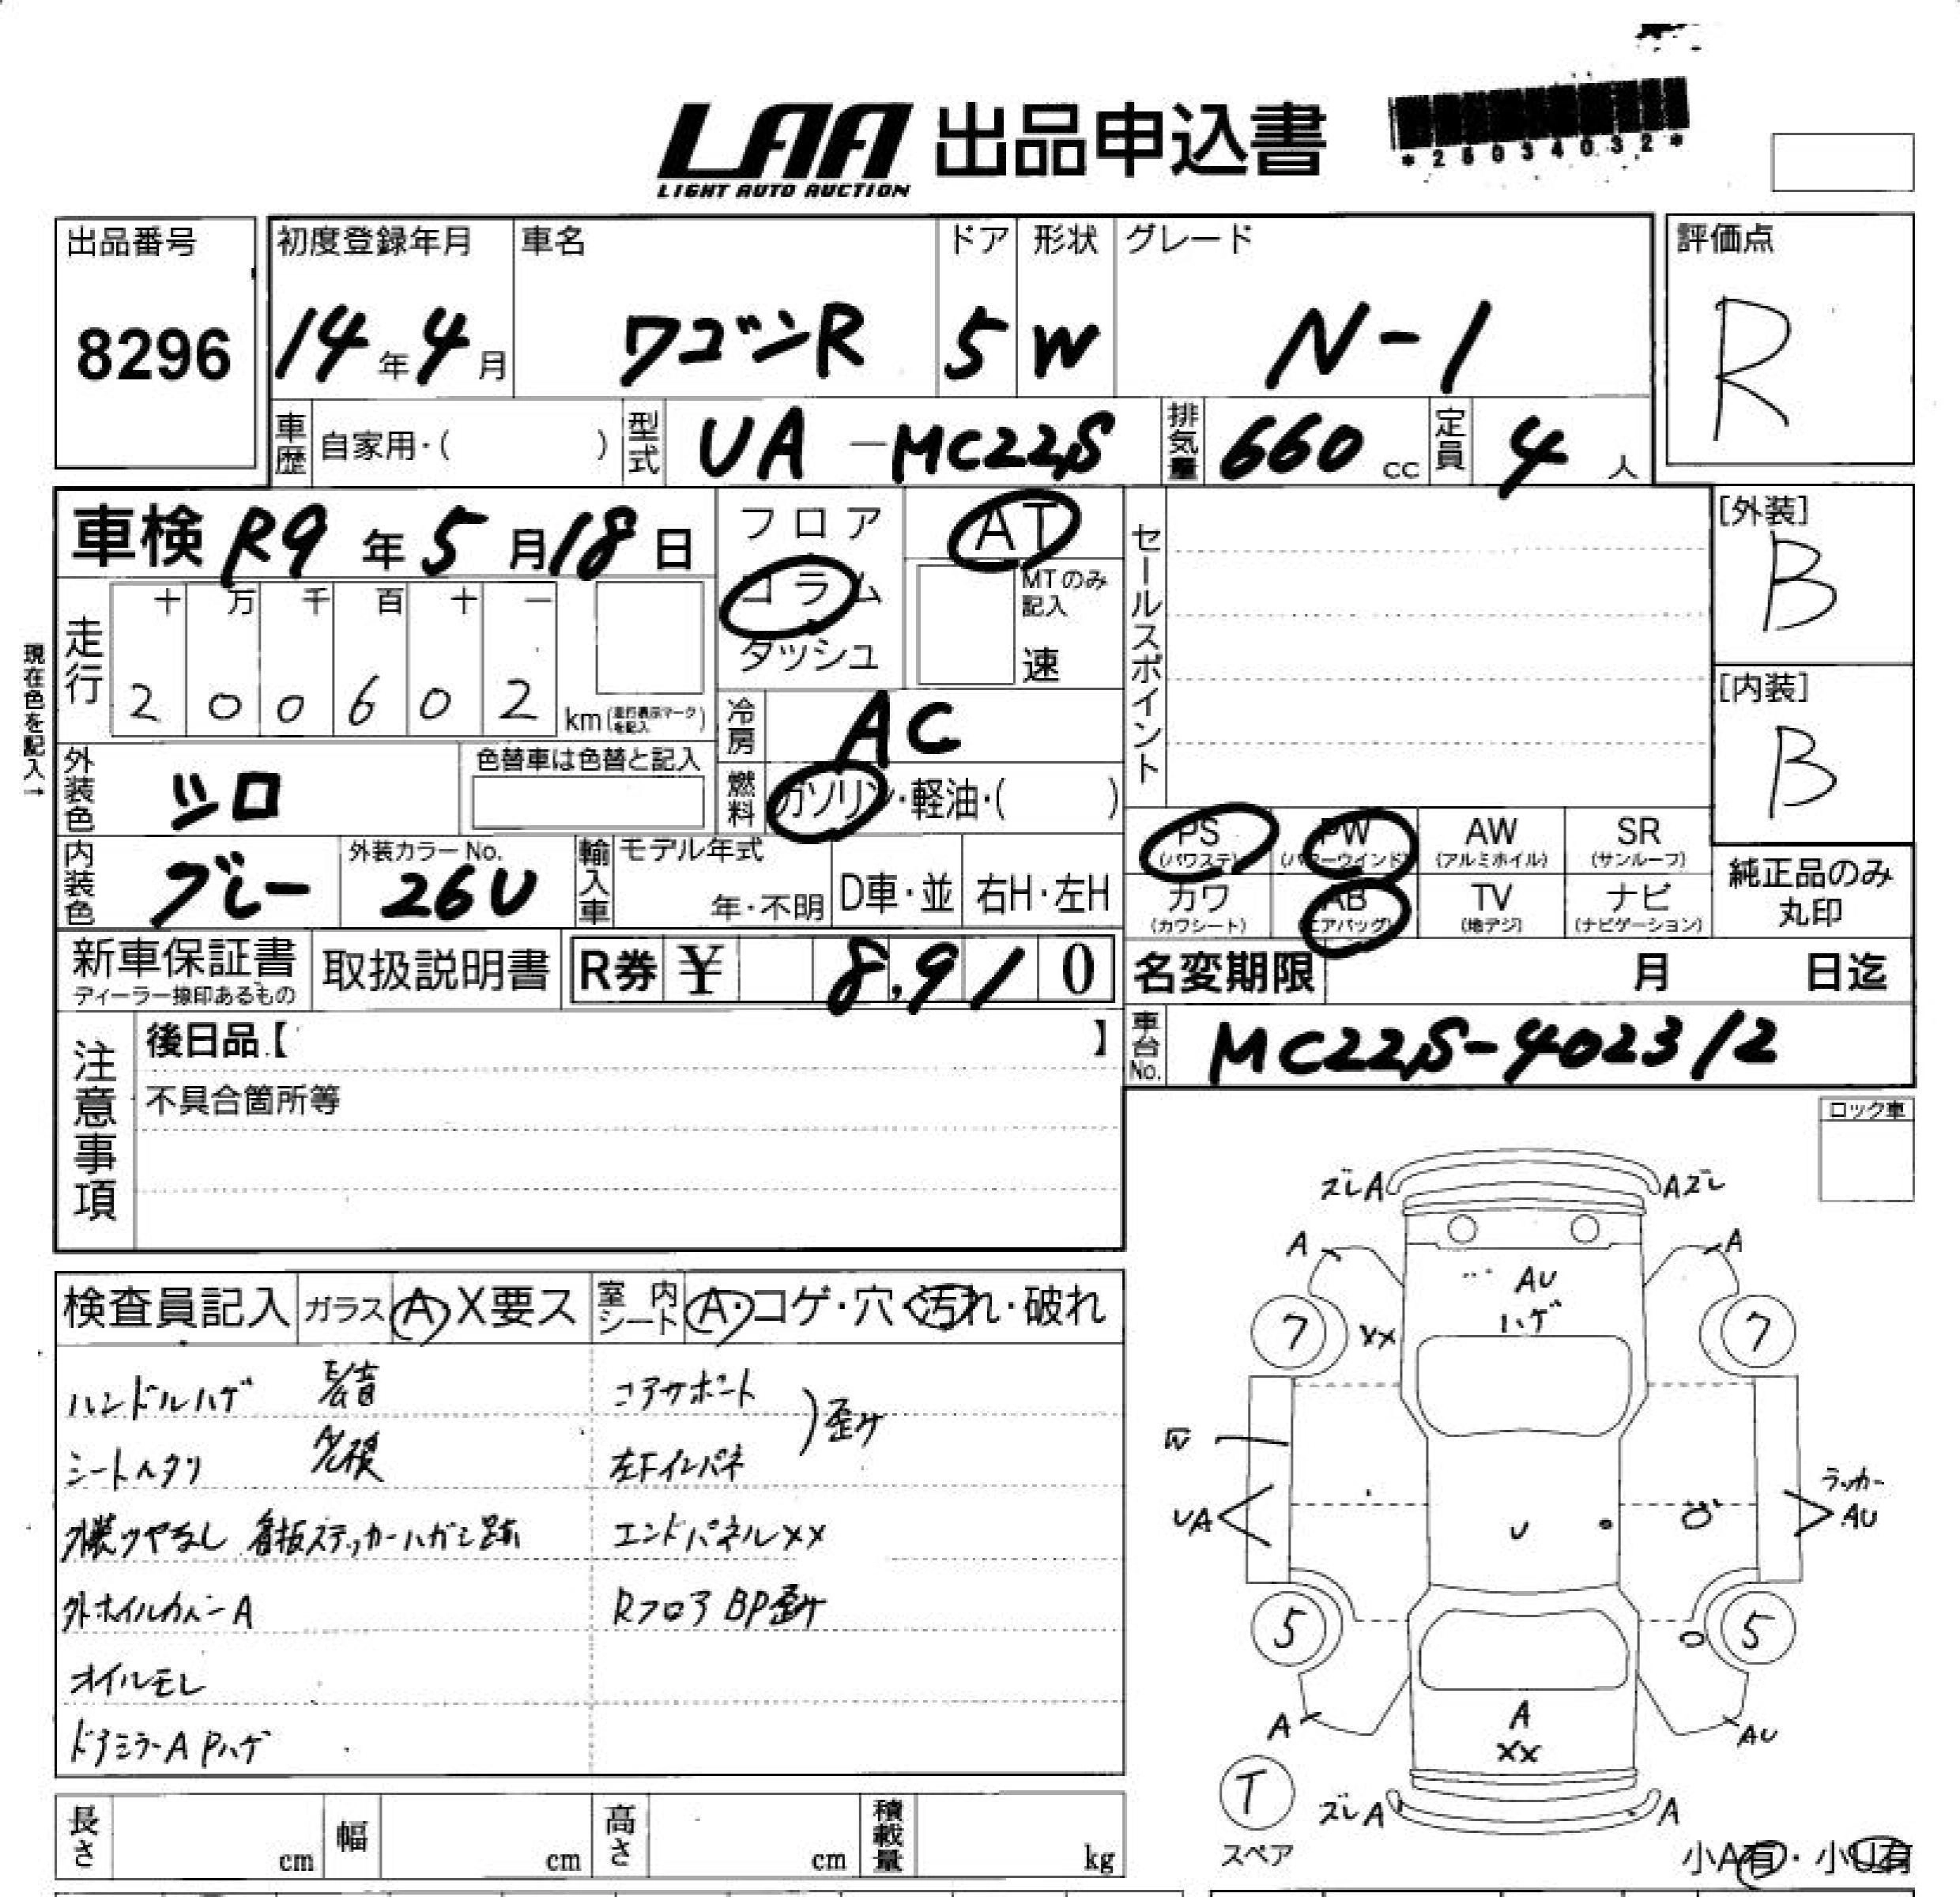 LAA 出品申込書
LIGHT AUTO AUCTION
*25034032*
出品番号 初度登録年月 車名 ドア 形状 グレード 評価点
8296 14年4月 ワゴンR 5 W N-1 R
車歴 自家用・( ) 型式 UA-MC22S 排気量 660 cc 定員 4 人
車検 R9年5月18日 フロア AT セールスポイント [外装]
B
コラム MTのみ記入
ダッシュ 速
現在色を記入→
走行 十 万 千 百 十 一
2 0 0 6 0 2 km (走行表示マークを記入)
[内装]
B
冷房 AC
外装色 シロ 色替車は色替と記入 燃料 ガソリン・軽油・( )
PS (パワステ) PW (パワーウインド) AW (アルミホイル) SR (サンルーフ)
内装色 グレー 外装カラーNo. 26U 輸入車 モデル年式 年・不明 D車・並 右H・左H
カワ (カワシート) AB (エアバッグ) TV (地デジ) ナビ (ナビゲーション) 純正品のみ丸印
新車保証書 ディーラー捺印あるもの 取扱説明書 R券 ¥ 8,910 名変期限 月 日迄
注意事項 後日品【 】 車台No. MC22S-402312
不具合箇所等
ロック車
ズレA Aズレ
A A
AU
ハゲ
7 XX 7
検査員記入 ガラス A X要ス 室内シート A・コゲ・穴・汚れ・破れ
ハンドルハゲ コアサポート
歪ケ
シートヘタリ 左Fインパネ
外装ツヤなし 看板ステッカーハガシ跡 エンドパネルXX
外ホイルカバーA Rフロア BP歪ケ
オイルモレ
ドアミラーA Pハゲ
W
UA U ラッカー
AU
5 5
A A AU
XX
T
スペア
ズレA A
長さ cm 幅 cm 高さ cm 積載量 kg
小A有・小U有